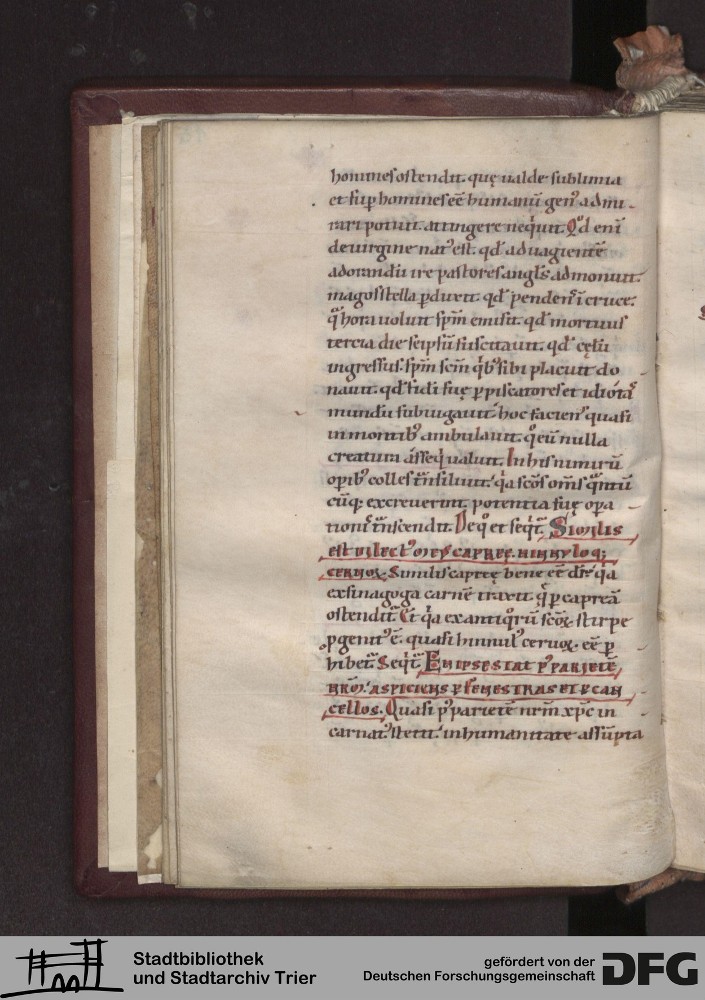 homines ostendit. quę ualde sublimia
et sup homines eē humanū gen' admi
rari potuit. attingere neqͥuit. Qd eni
de uirgine nat' est. qd ad uagientē
adorandū ire pastores angls admonuit.
magos stella pduxit. qd penden' ī cruce.
qͣ hora uoluit spm emisit. qd mortuus
tercia die seipsū suscitauit. qd cęlū
ingressus. spm scm qͥb' sibi placuit do
nauit. qd fidi suę p piscatores et idiotaſ
mundū subiugauit. hoc facienſ quasi
in montib' ambulauit. qͦ eū nulla
creatura assequi ualuit. In his nimirū
opib' colles tͣnsiluit. qͥa scōs om̄s qͣntū
cūq; excreuerint. potentia suę opa
tionſ tͣnscendit. De qͦ et seqͥt. Similis
est dilect' meus capreę. hinnuloq;
ceruoꝝ. Similis capreę bene eē dr̄. qͥa
ex sinagoga carnē traxit. qͣ p capreā
ostendit. Et qͥa ex antiqͦrū scōꝝ stirpe
pgenit' ē. quasi hinnul' ceruoꝝ. eē p
hibet. Seqͥt. En ipse stat p' parietē
nrm. aspiciens p fenestras et p can
cellos. Quasi p' parietē nrm xpc in
carnat' stetit. in humanitate assūpta
Stadtbibliothek
und Stadtarchiv Trier
gefördert von der
Deutschen Forschungsgemeinschaft
DFG